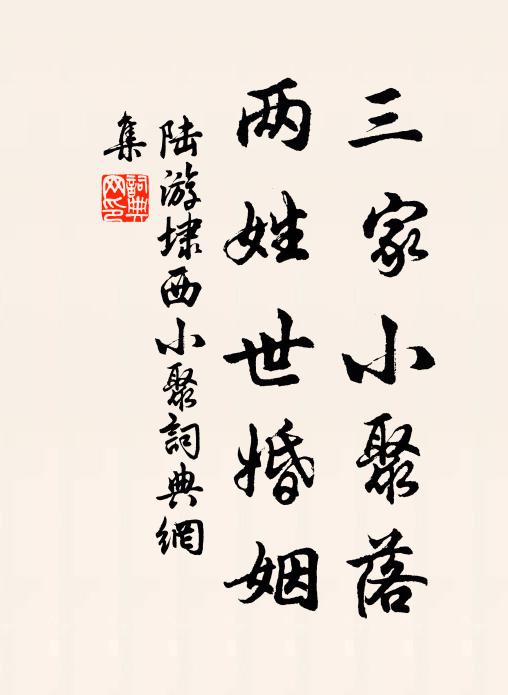 三家小聚落
两姓世婚姻
陆游埭西小聚詞典網
集
詞典网印